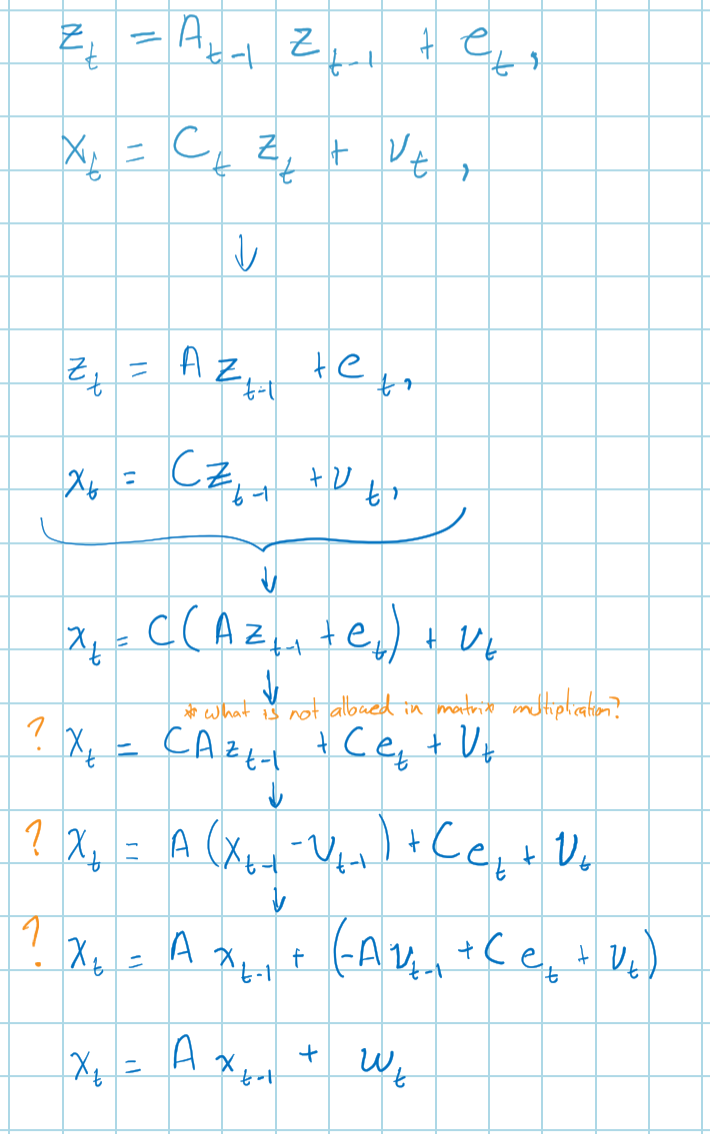 z_t = A_{t-1} z_{t-1} + e_t,
x_t = C_t z_t + v_t,
↓
z_t = A z_{t-1} + e_t,
x_t = C z_{t-1} + v_t,
↓
x_t = C(A z_{t-1} + e_t) + v_t
↓
* what is not allowed in matrix multiplication?
? x_t = CA z_{t-1} + C e_t + v_t
↓
? x_t = A(x_{t-1} - v_{t-1}) + C e_t + v_t
↓
? x_t = A x_{t-1} + (-A v_{t-1} + C e_t + v_t)
x_t = A x_{t-1} + w_t